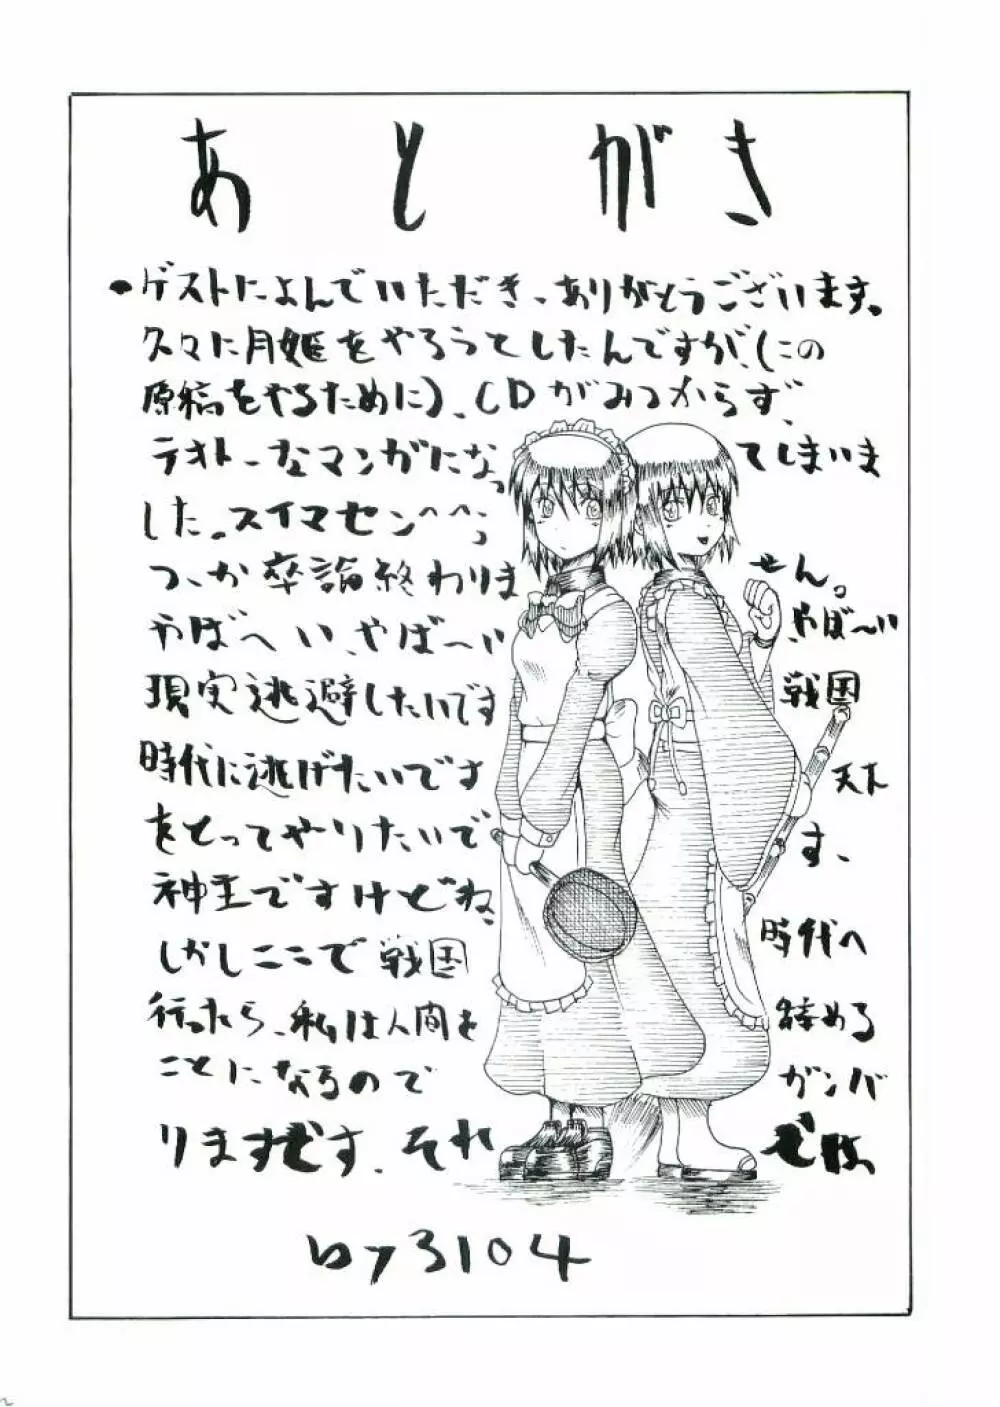 あとがき
・ゲストによんでいただき、ありがとうございます。
久々に月姫をやろうとしたんですが、(この
原稿をやるために)、CDがみつからず、
テキトーなマンガになってしまいま
した。スイマセン^^;
つーか卒論終わりません。
やばへい、やば〜いやば〜い
現実逃避したいです戦国
時代に逃げたいです天下
をとってやりたいです、
神主ですけどね、
しかしここで戦国時代へ
行ったら、私は人間を辞める
ことになるのでガンバ
りますです。それでは。
by3104